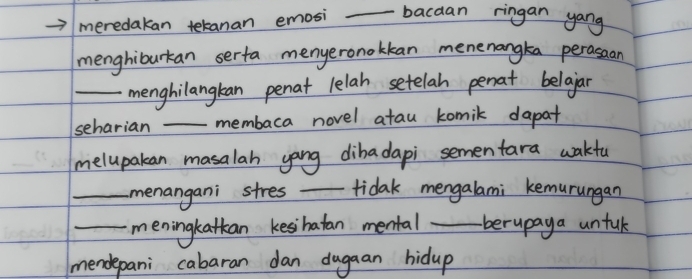 → meredakan tekanan emosi — bacaan ringan yang
menghiburkan serta menyeronokkan menenangka perasaan
— menghilangkan penat lelah setelah penat belajar
seharian — membaca novel atau komik dapat
melupakan masalah yang dihadapi sementara waktu
— menangani stres — tidak mengalami kemurungan
— meningkatkan kesihatan mental — berupaya untuk
mendepani cabaran dan dugaan hidup